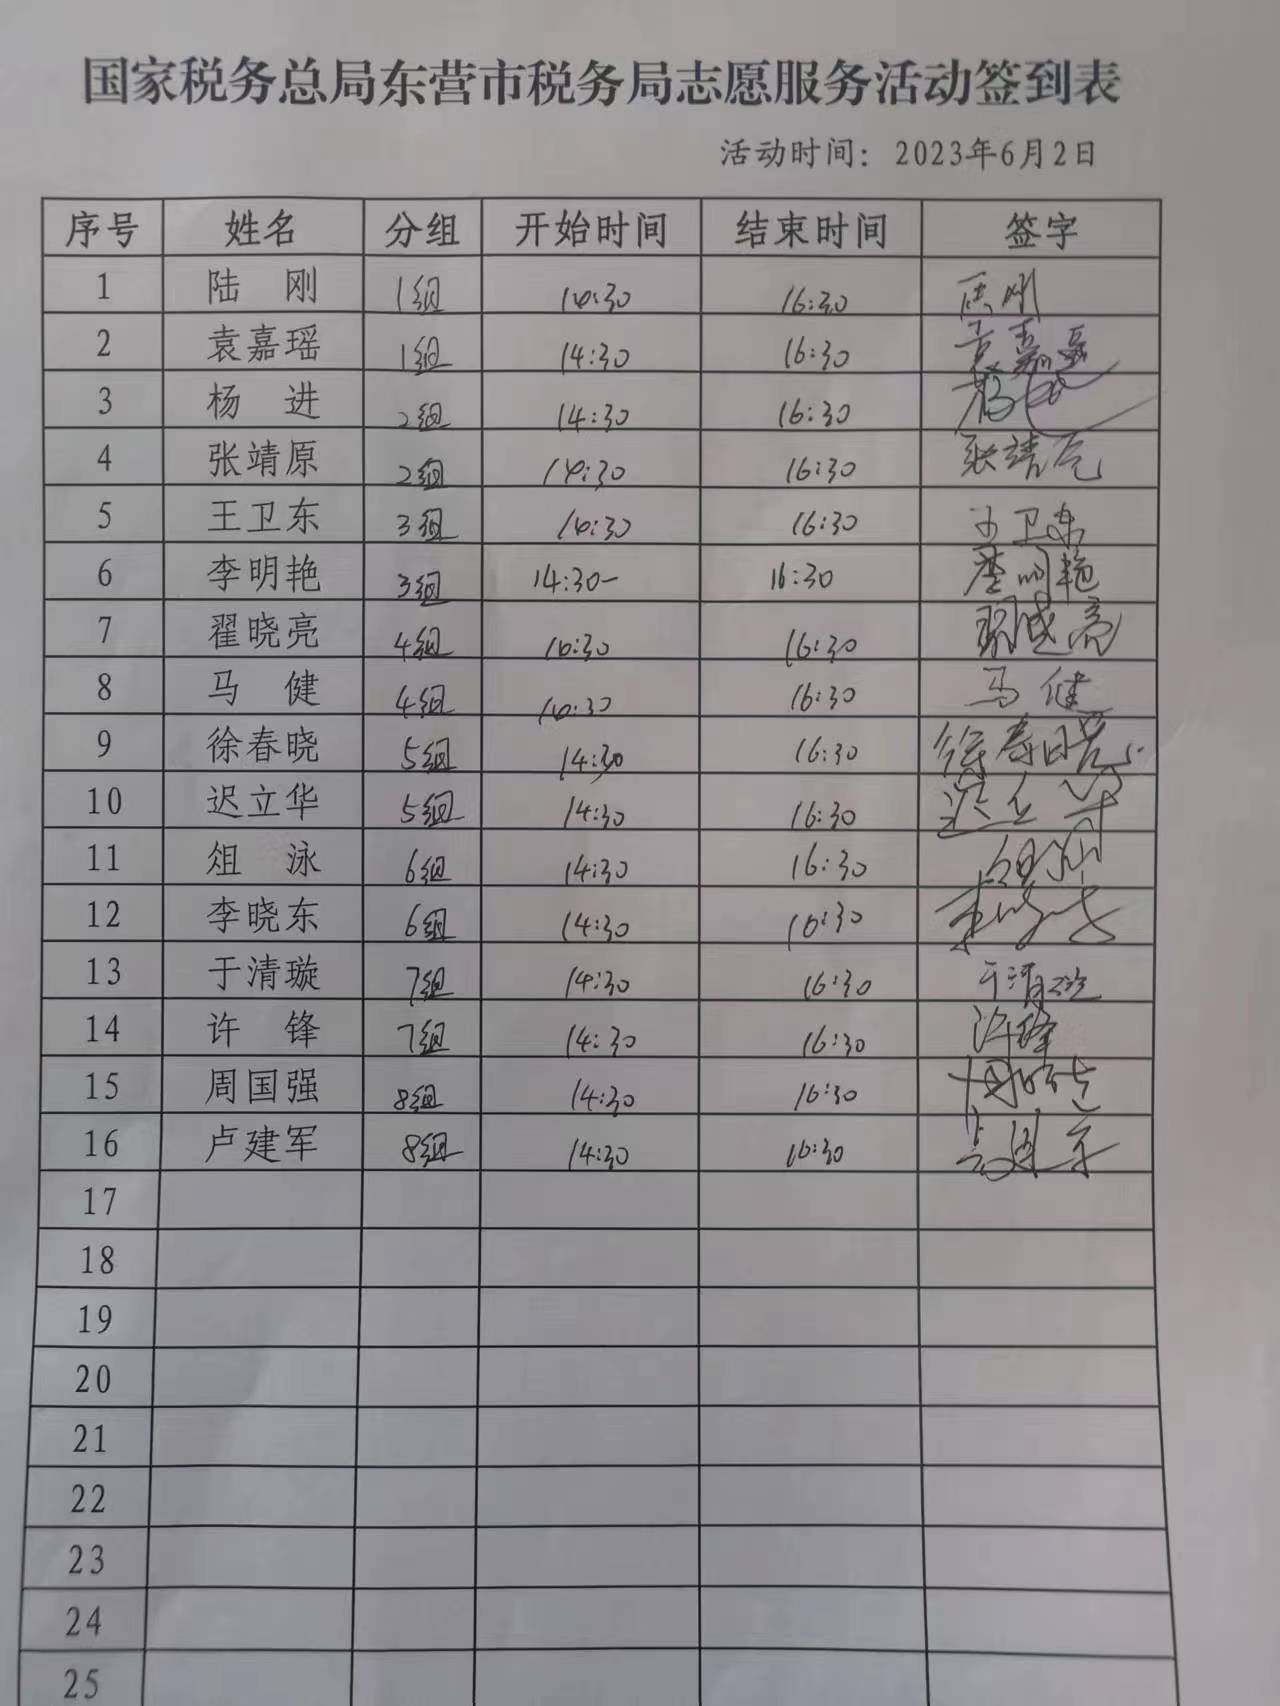 国家税务总局东营市税务局志愿服务活动签到表
活动时间：2023年6月2日
序号 姓名 分组 开始时间 结束时间 签字
1 陆 刚 1组 14:30 16:30 陆刚
2 袁嘉瑶 1组 14:30 16:30 袁嘉瑶
3 杨 进 2组 14:30 16:30 杨进
4 张靖原 2组 14:30 16:30 张靖原
5 王卫东 3组 14:30 16:30 王卫东
6 李明艳 3组 14:30- 16:30 李明艳
7 翟晓亮 4组 14:30 16:30 翟晓亮
8 马 健 4组 14:30 16:30 马健
9 徐春晓 5组 14:30 16:30 徐春晓
10 迟立华 5组 14:30 16:30 迟立华
11 俎 泳 6组 14:30 16:30 俎泳
12 李晓东 6组 14:30 16:30 李晓东
13 于清璇 7组 14:30 16:30 于清璇
14 许 锋 7组 14:30 16:30 许锋
15 周国强 8组 14:30 16:30 周国强
16 卢建军 8组 14:30 16:30 卢建军
17
18
19
20
21
22
23
24
25